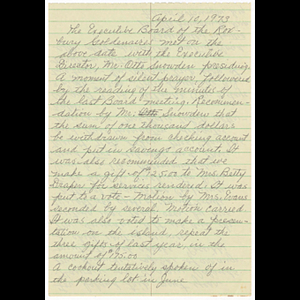 April 10, 1973
The Executive Board of the Rox-
bury Goldenaires met on the
above date with the Executive
Director, Mr. Otto Snowden presiding.
A moment of silent prayer, followed
by the reading of the minutes of
the last Board meeting. Recommen-
dation by Mr. Otto Snowden that
the sum of one thousand dollars
be withdrawn from checking account
and put in Savings account. It
was also recommended that we
make a gift of $25.00 to Mrs. Betty
Draper for services rendered. It was
put to a vote - Motion by Mr. Evans
seconded by several. Motion carried
It was also voted to make a presen-
tation on the island, repeat the
three gifts of last year, in the
amount of $75.00
A cookout tentatively spoken of in
the parking lot in June